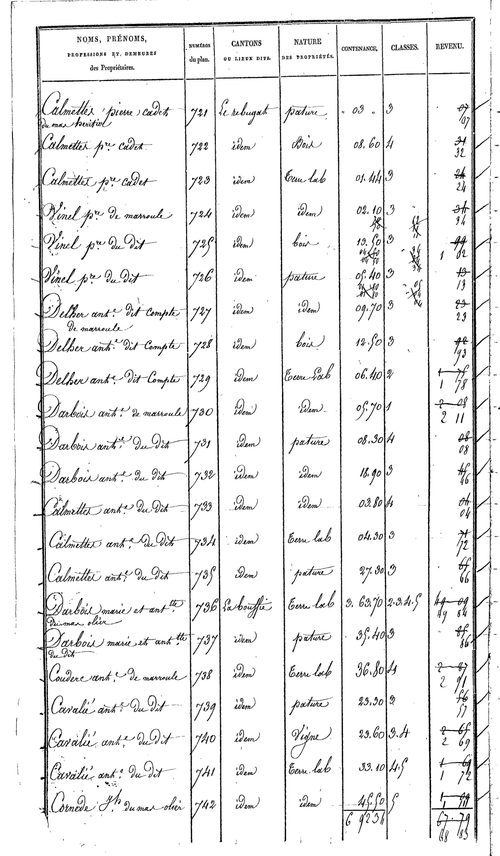 NOMS, PRÉNOMS, PROFESSIONS ET DEMEURES des Propriétaires. NUMÉROS du plan. CANTONS OU LIEUX DITS. NATURE DES PROPRIÉTÉS. CONTENANCE. CLASSES. REVENU.
Calmettes pierre cadet 721 Le rebugat pature 03 " 3 07
du mas 07
Calmettes p.re cadet 722 idem Bois 08.60 4 31
32
Calmettes p.re cadet 723 idem Terre lab 01.44 3
24
Vinel p.re de marroule 724 idem idem 02.10 3
Vinel p.re du dit 725 idem bois 13.50 3
1 02
Vinel p.re du dit 726 idem pature 05.40 3 13
13
Delher ant.e dit Compte 727 idem idem 09.70 3 23
de marroule 23
Delher ant.e dit Compte 728 idem bois 12.50 3
93
Delher ant.e dit Compte 729 idem Terre Lab 06.40 2 1 75
1 78
Darbois ant.e de marroule 730 idem idem 05.70 1 2 08
2 11
Darbois ant.e du dit 731 idem pature 08.30 4 08
08
Darbois ant.e du dit 732 idem idem 18.90 3
46
Calmettes ant.e du dit 733 idem idem 03.80 4 04
04
Calmettes ant.e du dit 734 idem Terre lab 04.30 3 71
72
Calmettes ant.e du dit 735 idem pature 27.30 3 65
66
Darbois marie et ant.tte 736 La bouffie Terre lab 3.63.70 2.3.4.5 49 09
du mas olier 49 84
Darbois marie et ant.tte 737 idem pature 35.40 3 85
du dit 86
Couderc ant.e de marroule 738 idem Terre lab 36.80 4 2 87
2 91
Cavalié ant.e du dit 739 idem pature 23.30 3 56
57
Cavalié ant.e du dit 740 idem Vigne 23.60 3.4 2 65
2 69
Cavalié ant.e du dit 741 idem Terre lab 33.10 4.5 1 69
1 72
Cornede J.h du mas olier 742 idem idem 45.50 5
6 92 36 67.79
68 85